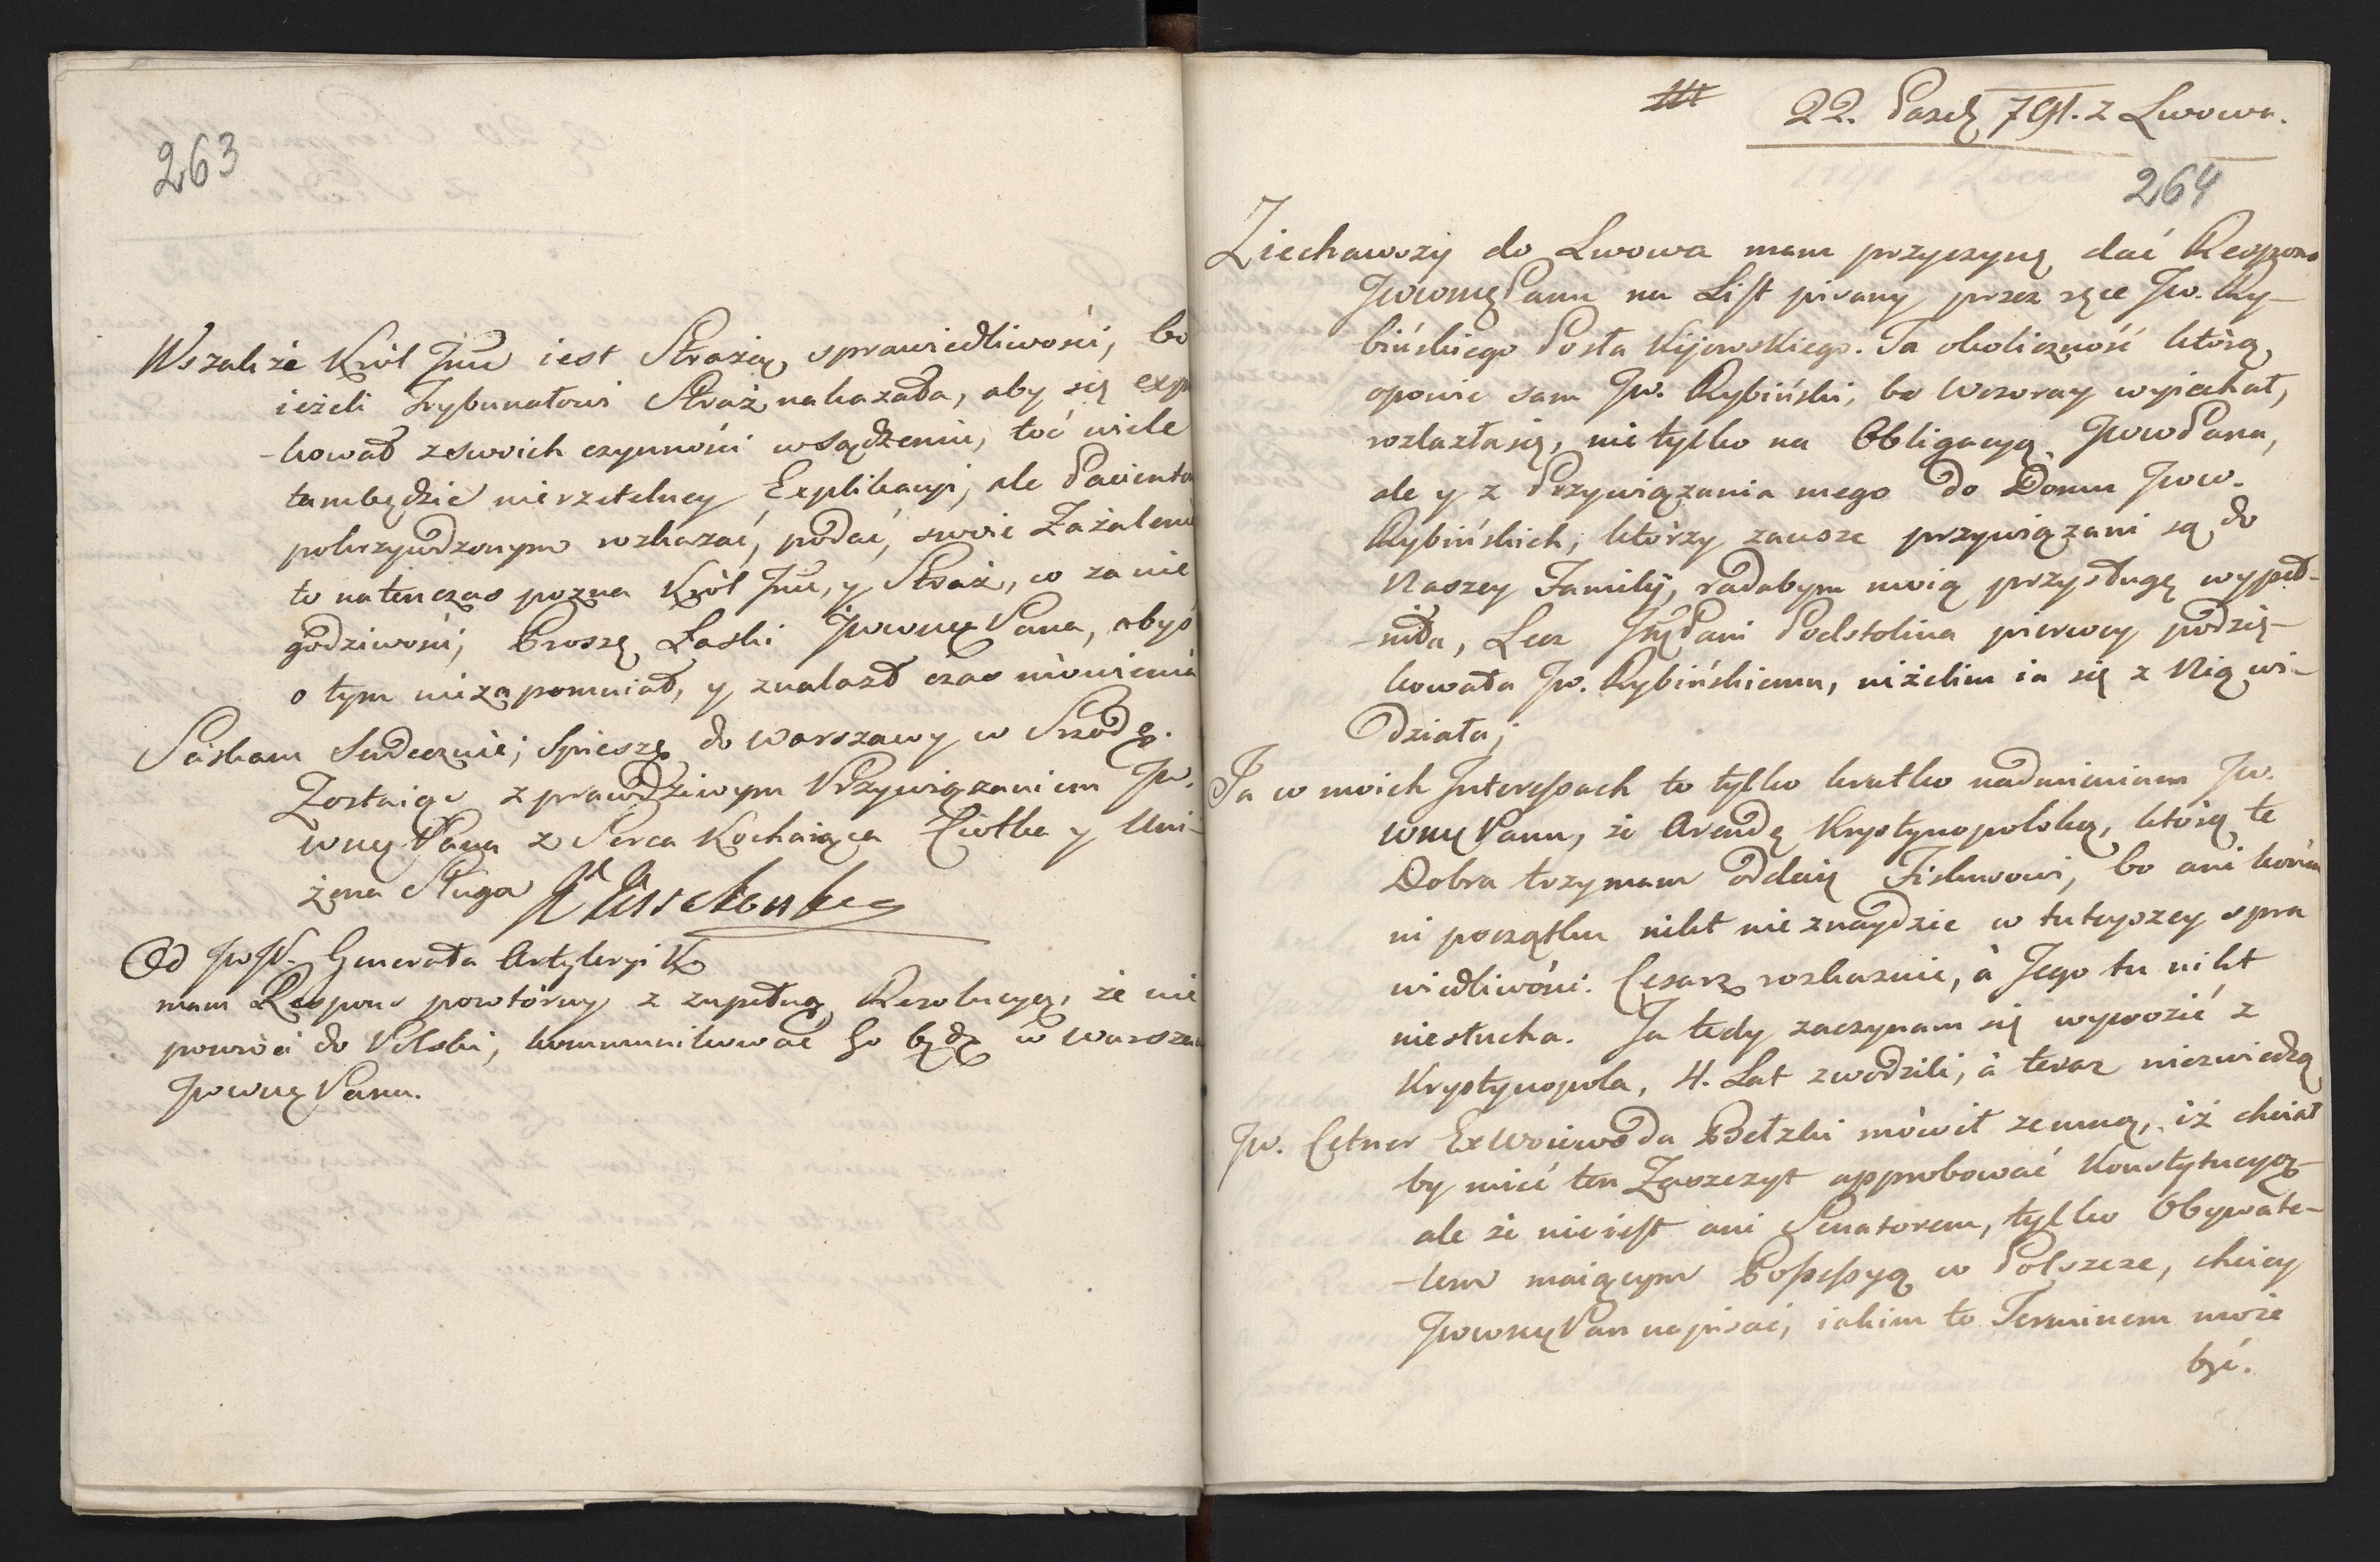 263
Wszakże Król Jmć iest Strażą sprawiedliwości, bo
ieżeli Trybunałowi Straż nakazała, aby się expli
-kował z swoich czynności w Sądzeniu, toć wiele
tam będzie nierzetelney Explikacyi, ale Pacientom
pokrzywdzonym rozkazać, podać, swoie Zażaleni
to natenczas pozna Król Jmć, y Straż, co za nie
godziwości, Proszę Łaski Jwwnę Pana, abyś
o tym niezapomniał, y znalazł czas mówienia
Sciskam Serdecznie; Spieszę do Warszawy w Srzodę.
Zostaiąc z prawdziwym Przywiązaniem Jw.
wnę Pana z Serca Kochaiąca Ciotka y Uni-
żona Sługa
Od JwJP. Generała Artyleryi K
mam Respons powtórny z zupełną Rezolucyą, że nie
powróci do Polski, kommunikować Go będę w Warszaw
Jwwnę Panu.
22. Paźdz 791. z Lwowa.
264
Ziechawszy do Lwowa mam przyczynę dać Respons
Jwwnę Panu na List pisany przez ręce Jw. Ry-
bińskiego Posła Kijowskiego. Ta okoliczność którą
opowie sam Jw. Rybiński, bo Wczoray wyiechał,
rozlazła się, nie tylko na Obligacyą Jwwo Pana,
ale y z Przywiązania mego do Domu Jww.
Rybińskich, którzy zawsze przywiązani są do
Naszey Familij, radabym moią przysługę wypeł-
-niła, Lecz Jmę Pani Podstolina pierwey podzię-
kowała Jw. Rybińskiemu, niżelim ia się z Nią wi-
działa;
Ja w moich Interessach to tylko krutko nadmieniam Jw.
wnę Panu, że Arendę Krystynopolską, którą te
Dobra trzymam oddaię Fiskusowi, bo ani końca
ni początku nikt nie znaydzie w tuteyszey spra
wiedliwości. Cesarz rozkazuie, à Jego tu nikt
niesłucha. Ja tedy zaczynam się wywozić z
Krystynopola, 4. Lat zwodzili, à teraz niezwiedzą
Jw. Cetner ExWoiewoda Bełzki mówił zemną, iż chciał
by mieć ten Zaszczyt approbować Konstytucyą
ale że nieiest ani Senatorem, tylko Obywate-
-lem maiącym Possessyą w Polszcze, chciey
Jwwnę Pan napisać, iakim to Terminem może
być.